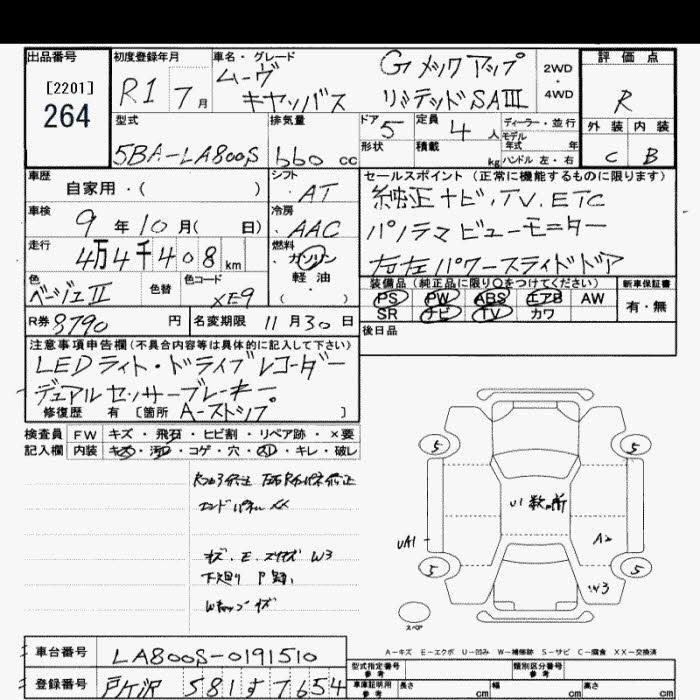 出品番号
[2201]
264
初度登録年月
R1 7月
車名・グレード
ムーヴ キャンバス
Gメックアップ
リミテッドSAIII
2WD
・
4WD
評価点
R
外装 内装
C B
型式
5BA-LA800S
排気量
660 cc
ドア
5
定員
4 人
形状
積載 kg
ディーラー・並行
モデル年式 年
ハンドル 左・右
車歴
自家用・( )
シフト
・AT
車検
9年10月( 日)
冷房
・AAC
走行
4万4千408km
燃料
・ガソリン
軽油
・( )
色
ベージュII
色替
色コード
XE9
R券 8790 円
名変期限 11月30日
セールスポイント(正常に機能するものに限ります)
純正ナビ、TV、ETC
パノラマビューモニター
左右パワースライドドア
装備品(純正品に限り〇をつけてください)
PS PW ABS エアB AW
SR ナビ TV カワ
新車保証書
有・無
後日品
注意事項申告欄(不具合内容等は具体的に記入して下さい)
LEDライト・ドライブレコーダー
デュアルセンサーブレーキ
修復歴 有 [箇所 A-ストップ ]
検査員 FW キズ・飛石・ヒビ割・リペア跡・×要
記入欄 内装 キズ・汚れ・コゲ・穴・スレ・キレ・破レ
エンドパネルXX
W3
下廻り
5 5
U1 数ヶ所
UA1 A2
5 5
W3
スペア
A-キズ E-エクボ U-凹み W-補修跡 S-サビ C-腐食 XX-交換済
車台番号 LA800S-0191510
登録番号 所沢 581 す 7654
型式指定番号
参考
類別区分番号
参考
車庫証明用
参考
長さ cm 幅 cm 高さ cm